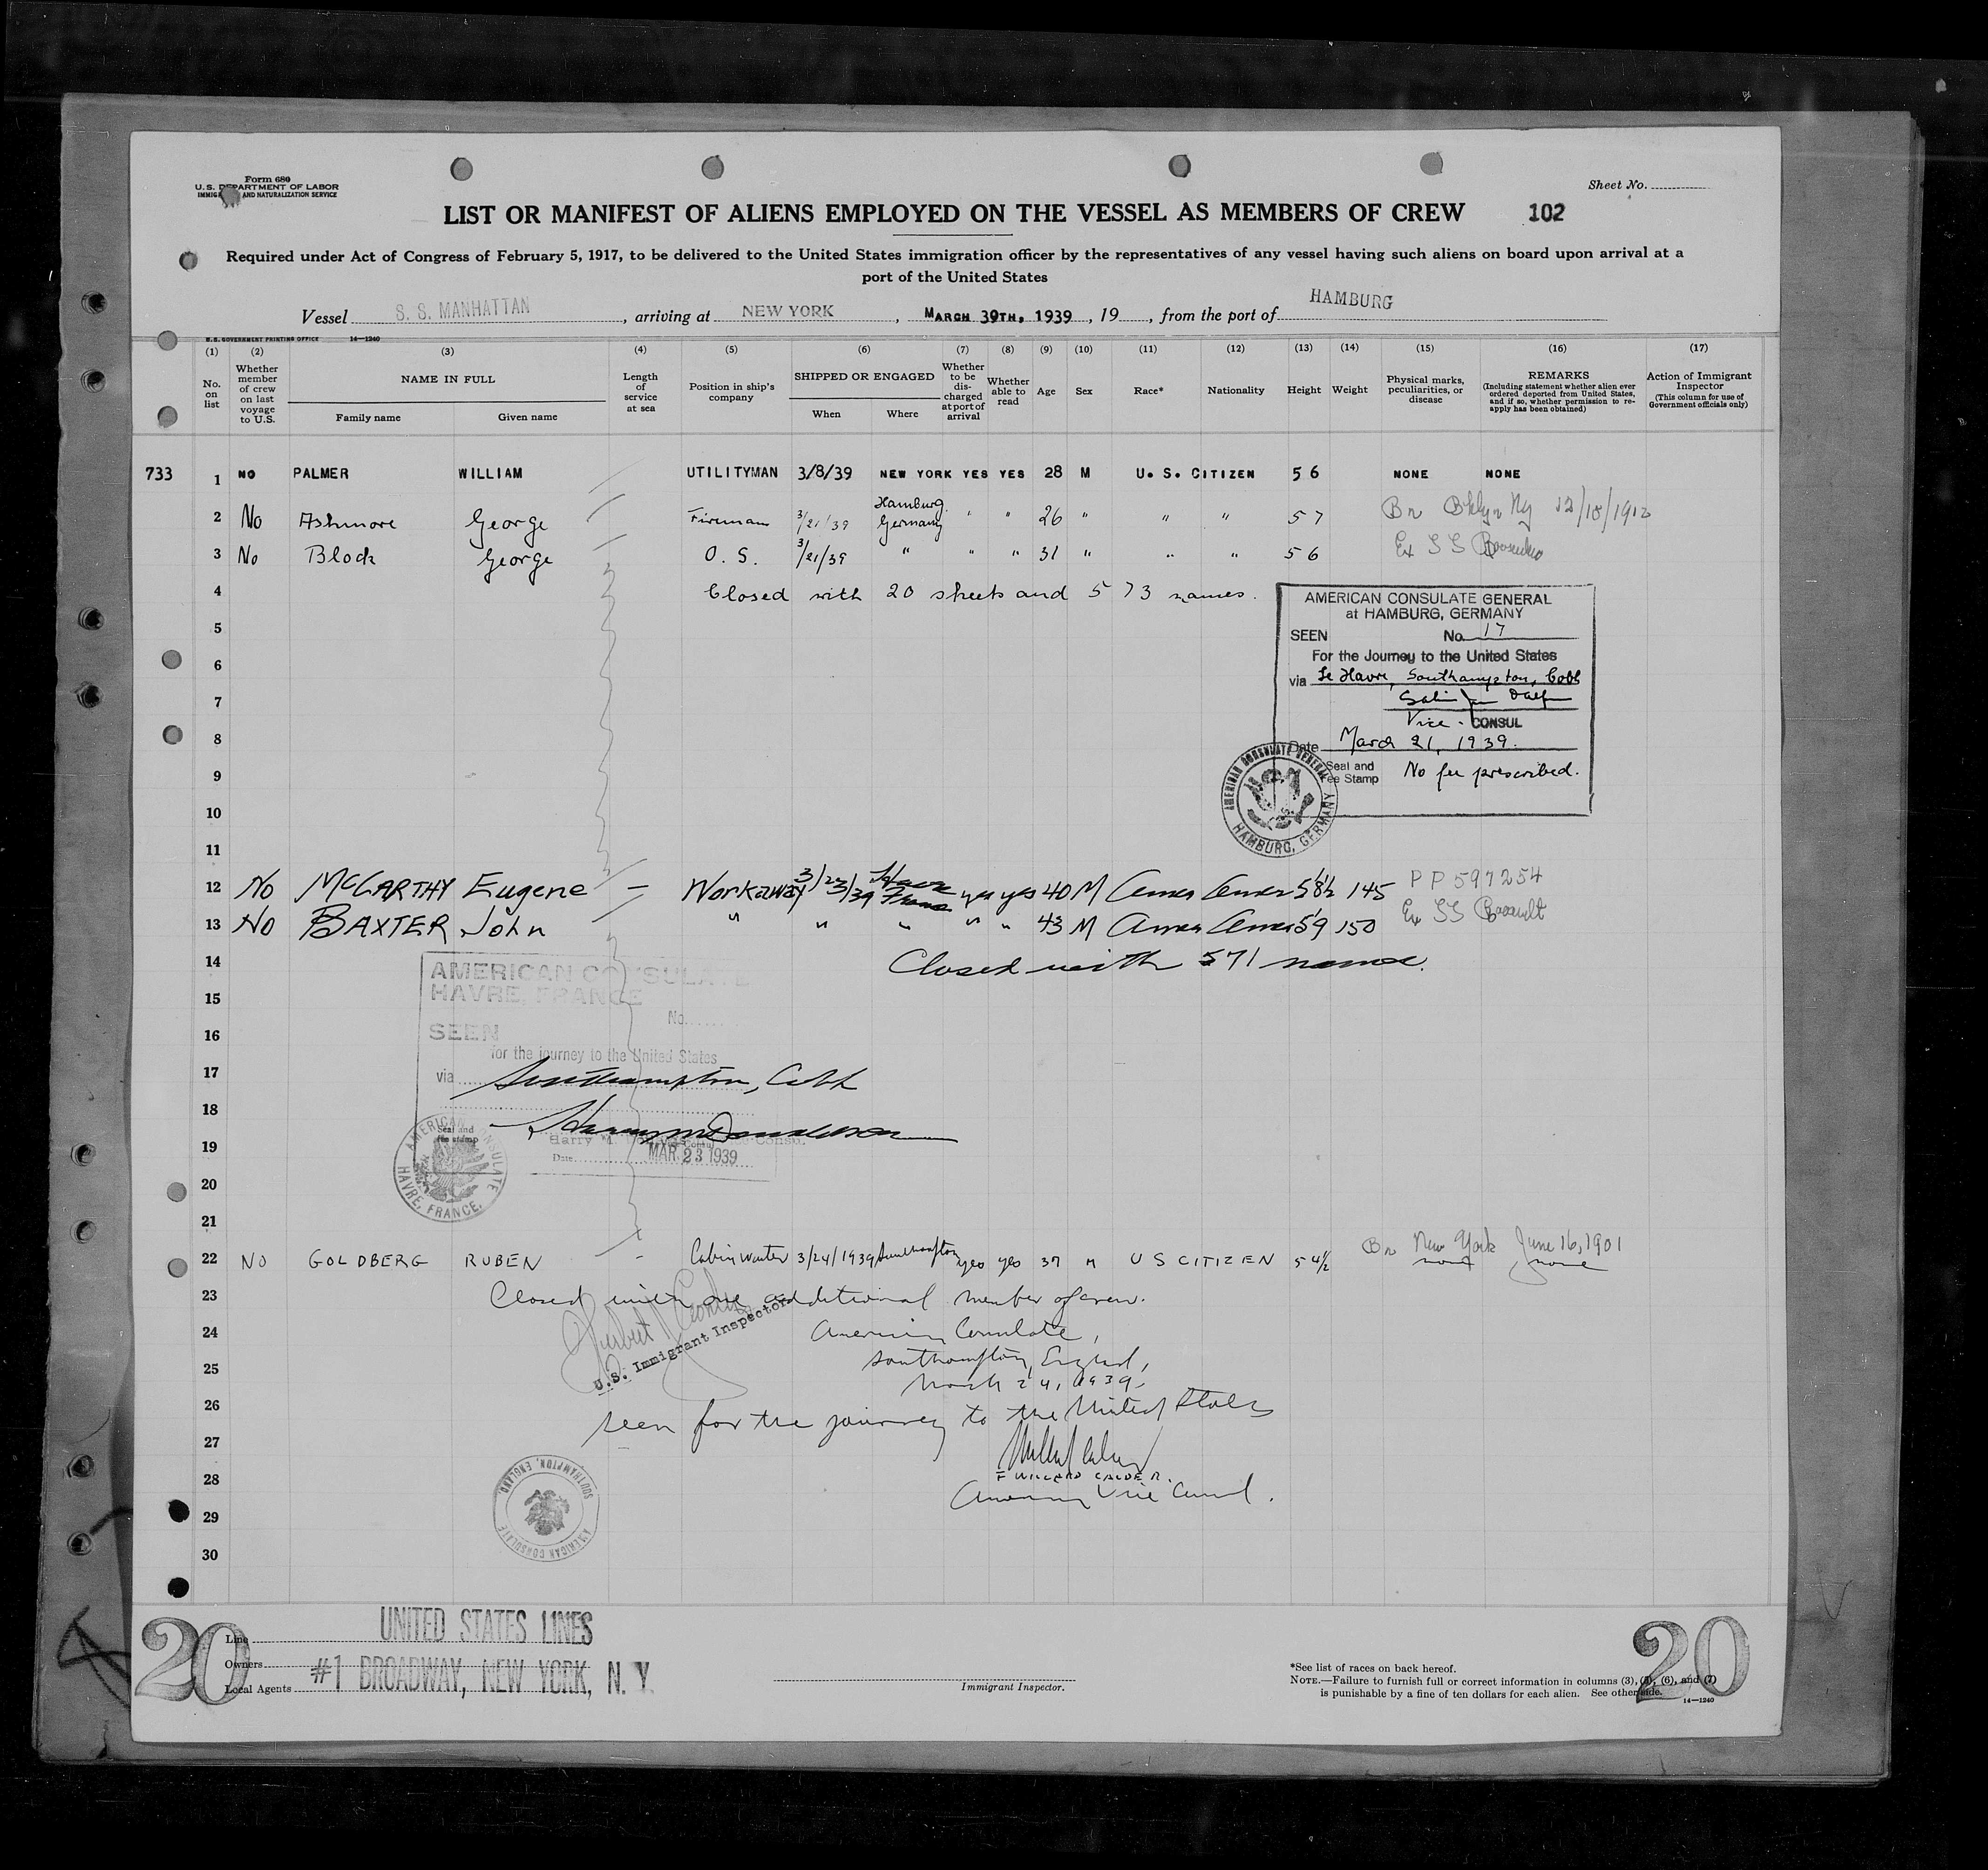 Form 680
U.S. DEPARTMENT OF LABOR
IMMIGRATION AND NATURALIZATION SERVICE
Sheet No.
LIST OR MANIFEST OF ALIENS EMPLOYED ON THE VESSEL AS MEMBERS OF CREW 102
Required under Act of Congress of February 5, 1917, to be delivered to the United States immigration officer by the representatives of any vessel having such aliens on board upon arrival at a
port of the United States
Vessel S. S. MANHATTAN, arriving at NEW YORK, MARCH 30TH, 1939, 19, from the port of HAMBURG
U.S. GOVERNMENT PRINTING OFFICE 14—1240
(1) No. on list
(2) Whether member of crew on last voyage to U.S.
(3) NAME IN FULL
Family name Given name
(4) Length of service at sea
(5) Position in ship's company
(6) SHIPPED OR ENGAGED
When Where
(7) Whether to be discharged at port of arrival
(8) Whether able to read
(9) Age
(10) Sex
(11) Race*
(12) Nationality
(13) Height
(14) Weight
(15) Physical marks, peculiarities, or disease
(16) REMARKS
(Including statement whether alien ever ordered deported from United States, and if so, whether permission to reapply has been obtained)
(17) Action of Immigrant Inspector
(This column for use of Government officials only)
733 1 NO PALMER WILLIAM UTILITYMAN 3/8/39 NEW YORK YES YES 28 M U. S. CITIZEN 5 6 NONE NONE
2 No Ashmore George Fireman 3/21/39 Hamburg Germany " " 26 " " " 5 7 Bn Bklyn Ny 12/18/1912
3 No Block George O. S. 3/21/39 " " " 31 " " " 5 6 Ex SS
4 Closed with 20 sheets and 573 names.
5
6
7
8
9
10
11
AMERICAN CONSULATE GENERAL
at HAMBURG, GERMANY
SEEN No. 17
For the Journey to the United States
via Le Havre, Southampton, Cobh
Vice - CONSUL
Date March 21, 1939.
Seal and
Fee Stamp No fee prescribed.
AMERICAN CONSULATE GENERAL HAMBURG, GERMANY
12 No McCARTHY Eugene — Workaway 3/23/39 Havre France yes yes 40 M Amer Amer 5'8½ 145 PP 597254
13 No BAXTER John " " " " " 43 M Amer Amer 5'9 150 Ex SS
14 Closed with 571 names.
15
16
17
18
19
20
21
AMERICAN CONSULATE
HAVRE, FRANCE
No.
SEEN
for the journey to the United States
via Southampton, Cobh
Seal and
fee stamp
Harry M.
Date MAR 23 1939
AMERICAN CONSULATE HAVRE, FRANCE.
22 NO GOLDBERG RUBEN - Cabin Waiter 3/24/1939 Southampton yes yes 37 M US CITIZEN 5 4½ Bn New York June 16, 1901
none none
23 Closed with one additional member of crew.
24 American Consulate,
25 Southampton, England,
March 24, 1939.
U.S. Immigrant Inspector
26 seen for the journey to the United States
27
28 F WILLARD CALDER.
American Vice Consul.
29
30
AMERICAN CONSULATE SOUTHAMPTON, ENGLAND.
20
Line UNITED STATES LINES
Owners
Local Agents #1 BROADWAY, NEW YORK, N. Y.
Immigrant Inspector.
*See list of races on back hereof.
NOTE.—Failure to furnish full or correct information in columns (3), (5), (6), and (7)
is punishable by a fine of ten dollars for each alien. See other side.
14—1240
20